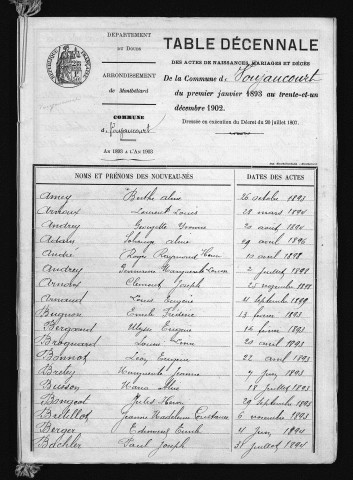 DÉPARTEMENT
DU DOUBS
ARRONDISSEMENT
de Montbéliard
COMMUNE
d Voujaucourt
AN 1893 A L'AN 1903
TABLE DÉCENNALE
DES ACTES DE NAISSANCES, MARIAGES ET DÉCÈS
De la Commune de Voujaucourt
du premier janvier 1893 au trente-et-un
décembre 1902.
Dressée en exécution du Décret du 20 juillet 1807.
NOMS ET PRÉNOMS DES NOUVEAU-NÉS DATES DES ACTES
Amey Berthe 26 octobre 1893
Arnoux Laurent Louis 28 mars 1894
Andrey Georgette Yvonne 20 août 1894
Solange 29 avril 1896
André Roger Raymond Henri 10 avril 1898
Andrey Marguerite Louise 2 juillet 1898
Arnoux Clément Joseph 25 novembre
Arnoud Louis Eugène 4 septembre 1899
Bugnon Emile Frédéric 13 février 1893
Ulysse Eugène 16 février 1893
Louise 20 avril 1893
Bonnot Léon Eugène 22 avril 1893
Marguerite Jeanne 7 juin 1893
Busson 18 juillet 1893
Jules Henri 29 septembre 1893
Jeanne Madeleine Constance 6 novembre 1893
Berger Edmond Emile 4 juin 1894
Bächler Paul Joseph 31 juillet 1894